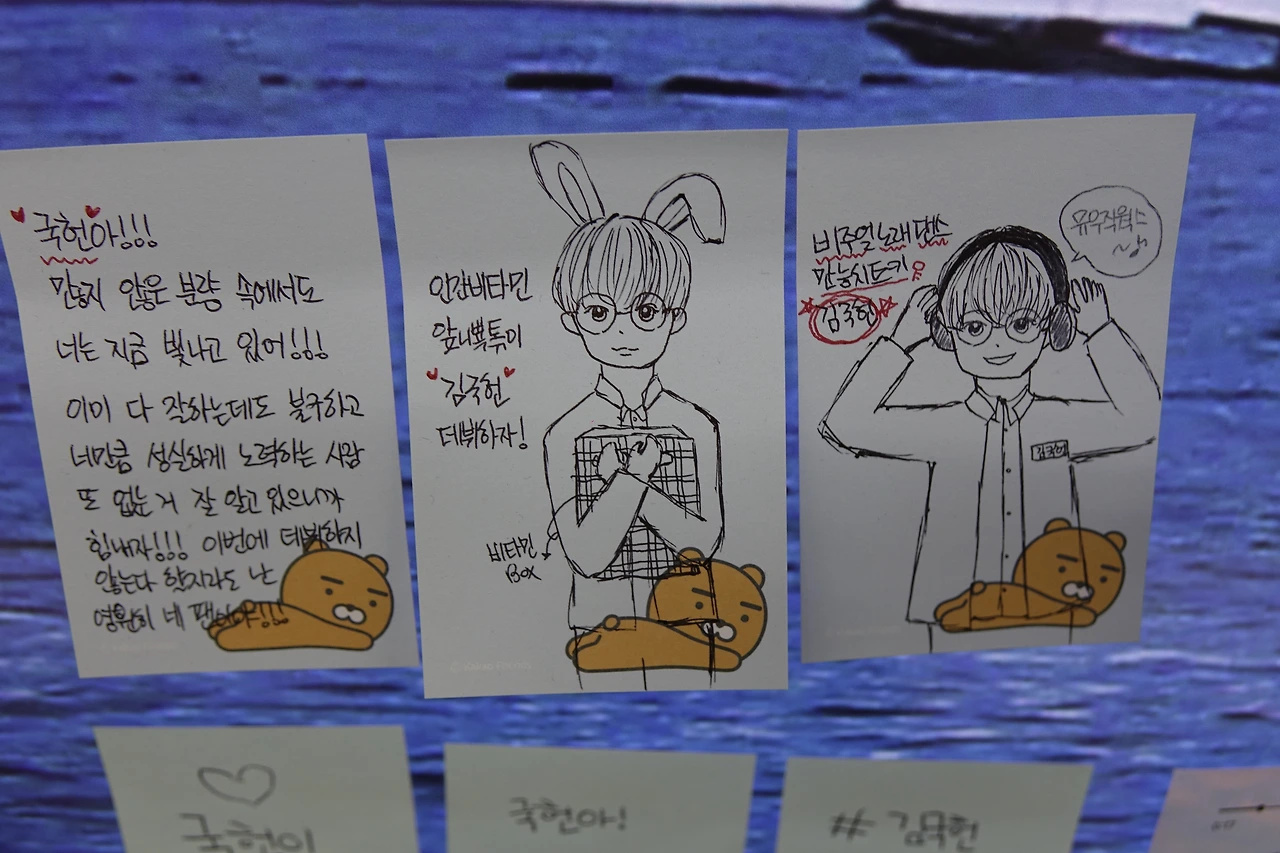 국헌아!!!
많지 않은 분량 속에서도
너는 지금 빛나고 있어!!!
이미 다 잘하는데도 불구하고
네만큼 성실하게 노력하는 사람
또 없는 거 잘 알고 있으니까
힘내자!!! 이번에 데뷔하지
않는다 할지라도 난
영원히 네 팬이야!!!
인간비타민
앞니뽕톡이
김국헌
데뷔하자!
비타민
Box
비주얼 노래 댄스
만능치트키
김국헌
뮤우직웍스
김국헌
국헌이
국헌아!
# 김국헌